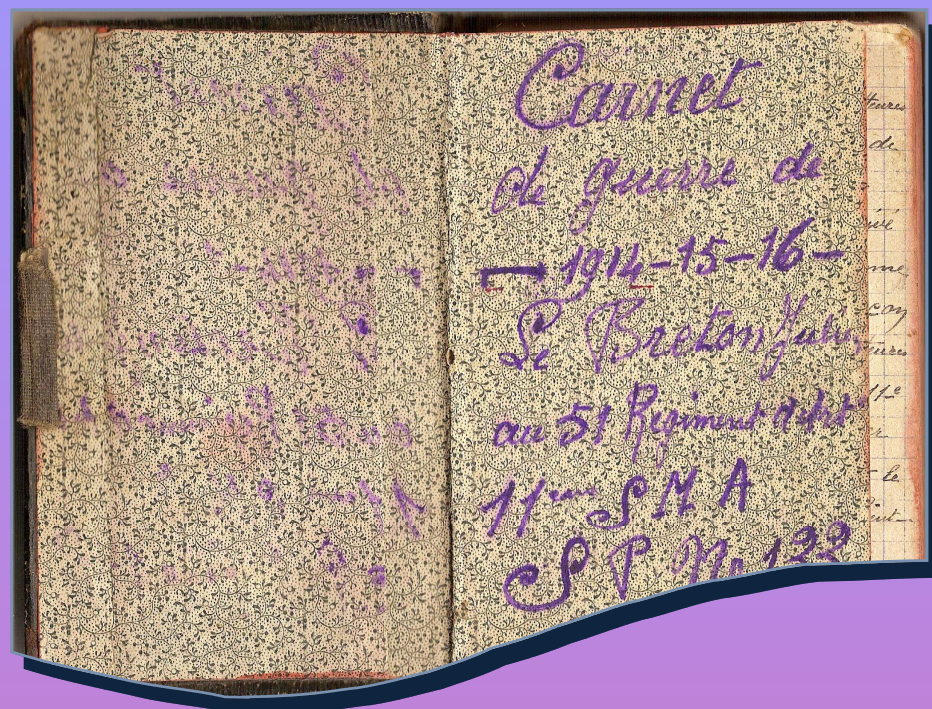 Carnet
de guerre de
— 1914-15-16 —
Le Breton Jules
au 51 Régiment d'Art
11ème S M A
S P No 133
de
le